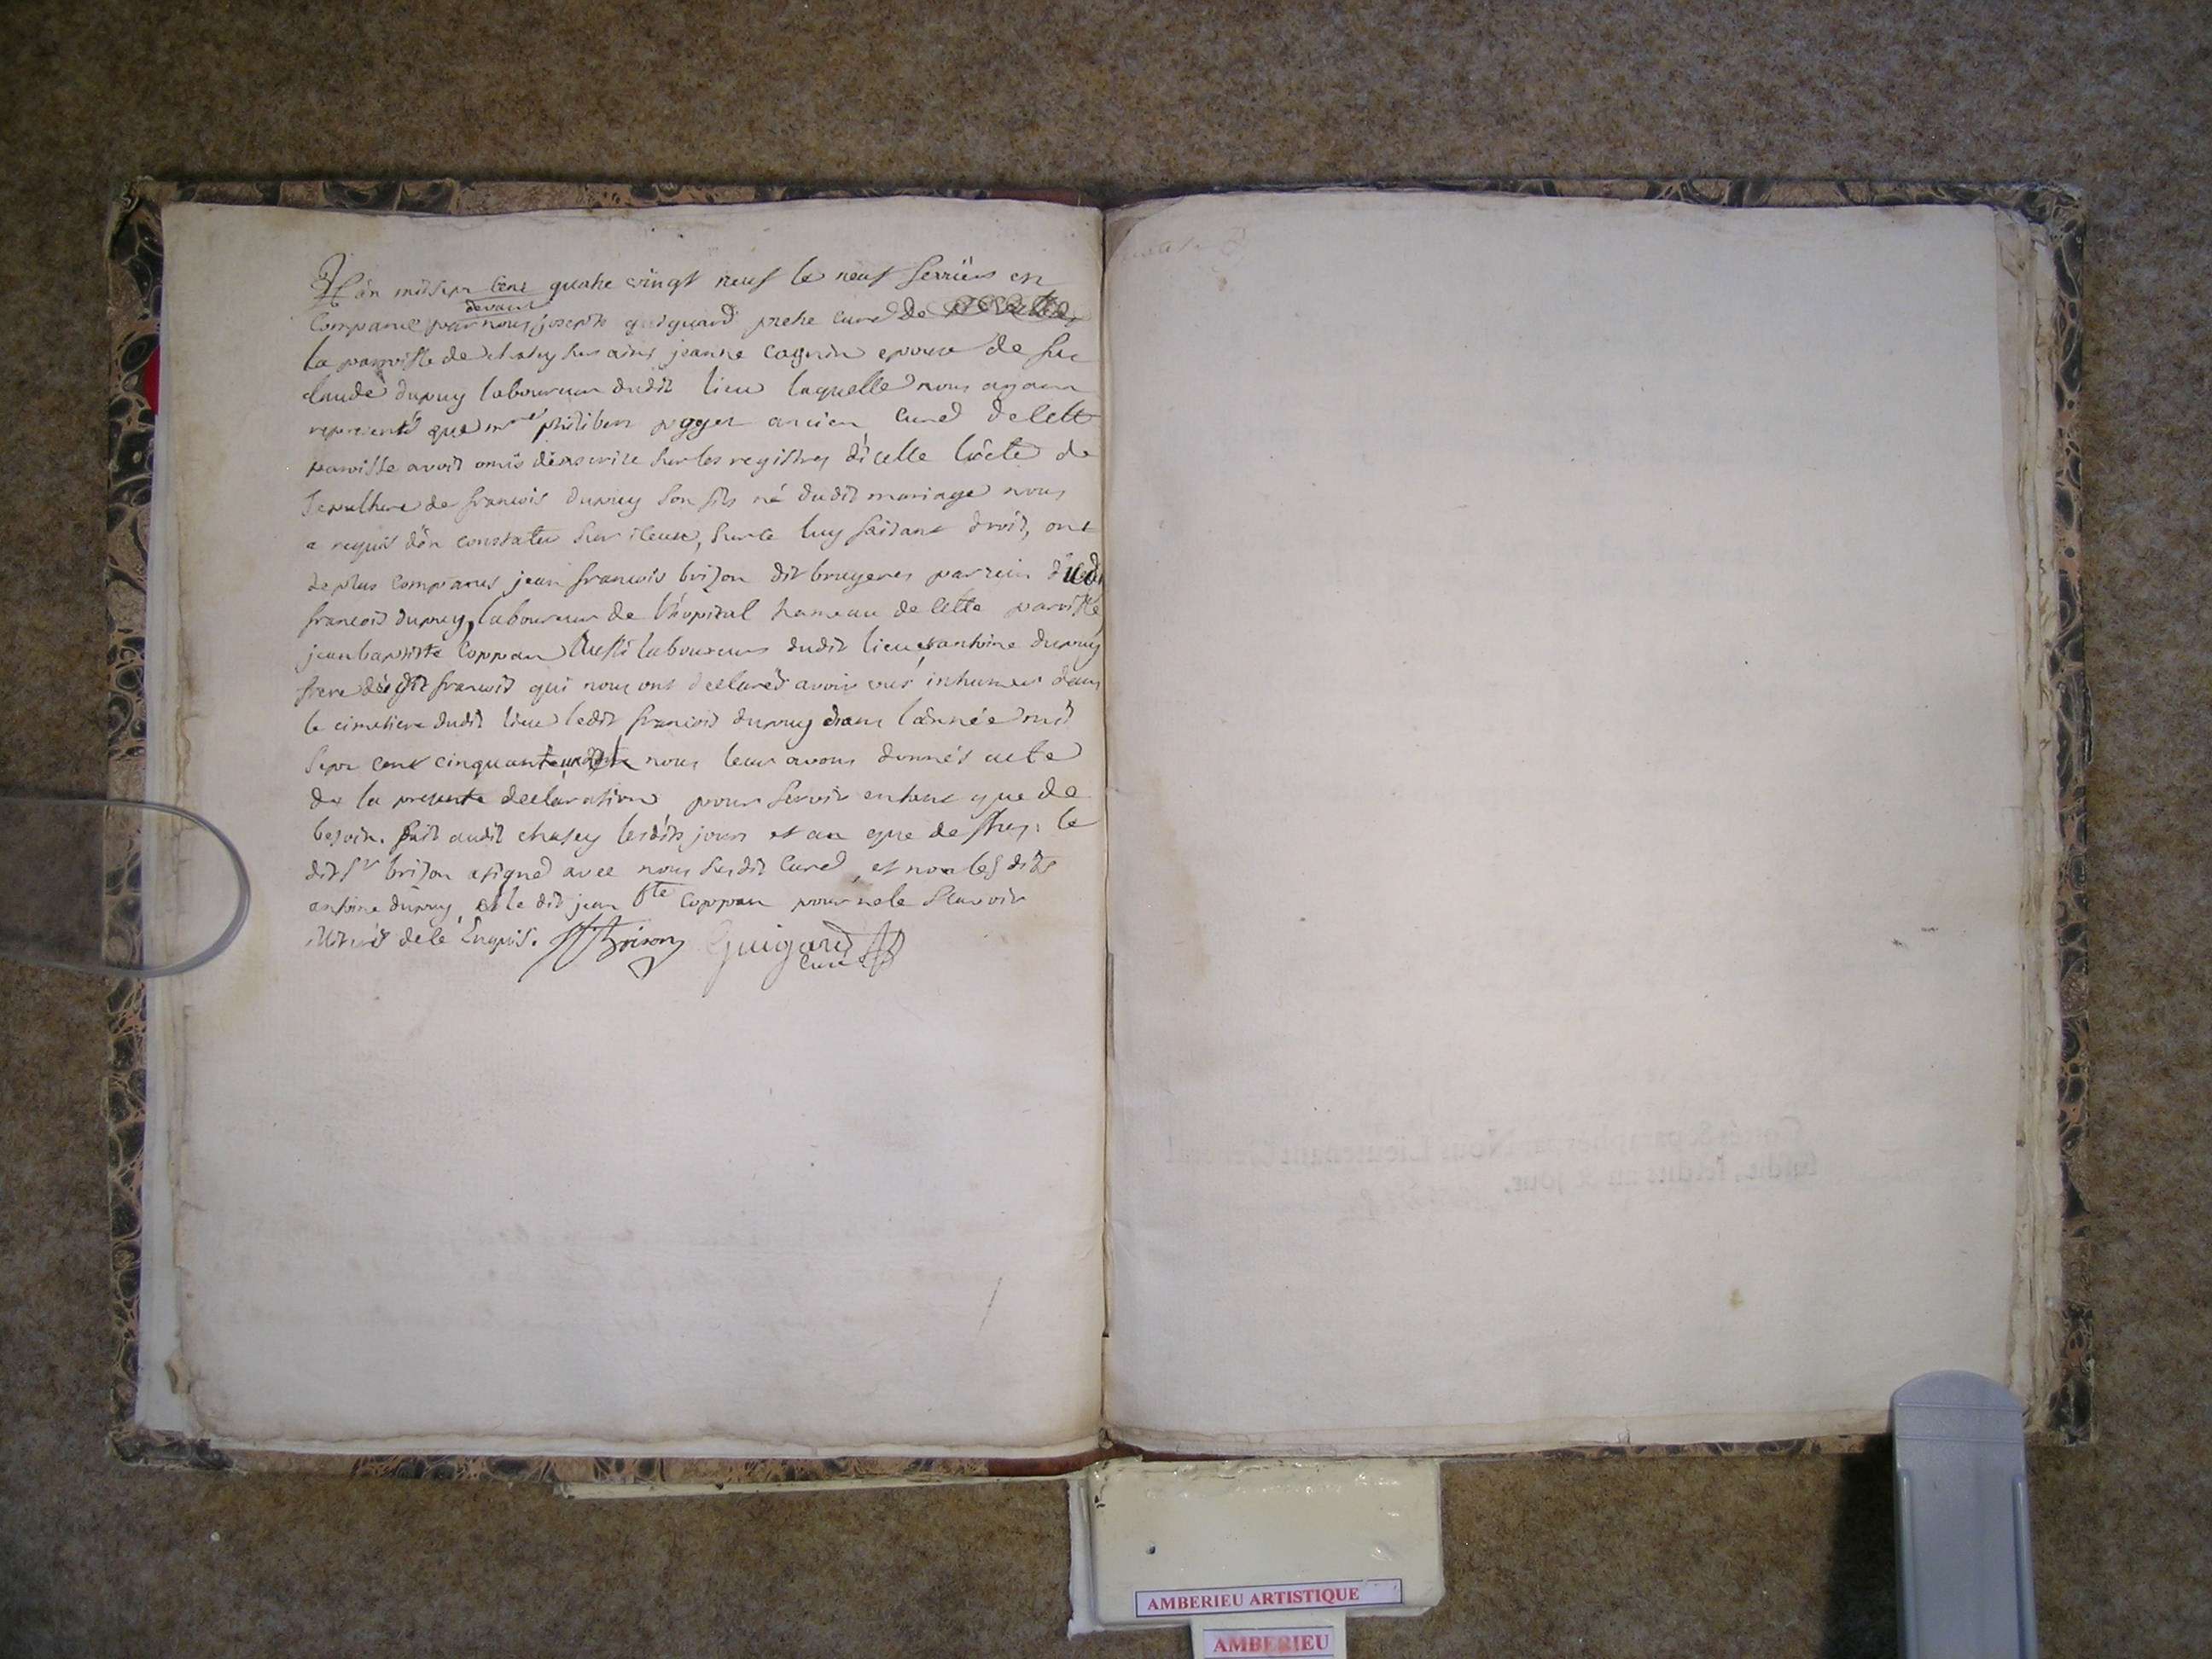 L'an mil sept cent quatre vingt neuf le neuf fevrier est
devant
Comparue par nous joseph guiguard pretre curé de
la parroisse de chasey sur ains jeanne cagnin epouse de feu
claude dupuy laboureur dudit lieu laquelle nous ayant
representé que mre philibert pggct ancien curé de cett
paroisse avoit omis d'enscrire sur les registres d'icelle l'acte de
Sepulture de francois dupuy son fils né dudit mariage nous
a requis d'en constater sur iceux, surce luy faisant droit, ont
de plus comparus jean francois brison dit bruyeres parrein dudi
francois dupuy, laboureur de l'hopital hameau de cette paroisse
jean baptiste Coppan Aussi laboureur dudit lieu et antoine dupuy
frere dudit francois qui nous ont declarés avoir vus inhumer dans
le cimetiere dudit lieu ledit francois dupuy dans l'année mil
Sept cent cinquante nous leur avons donnés acte
de la presente declaration pour servir entant que de
besoin. fait audit chasey lesdits jour et an que dessus: le
dit sr brison a signé avec nous susdit curé, et non lesdits
antoine dupuy, et le dit jean bte Coppan pour ne le scavoir
de ce Enquis. Brison Guigard
curé
Cottés & paraphés par Nous Lieutenant General
susdit, lesdits an & jour.
AMBERIEU ARTISTIQUE
AMBERIEU